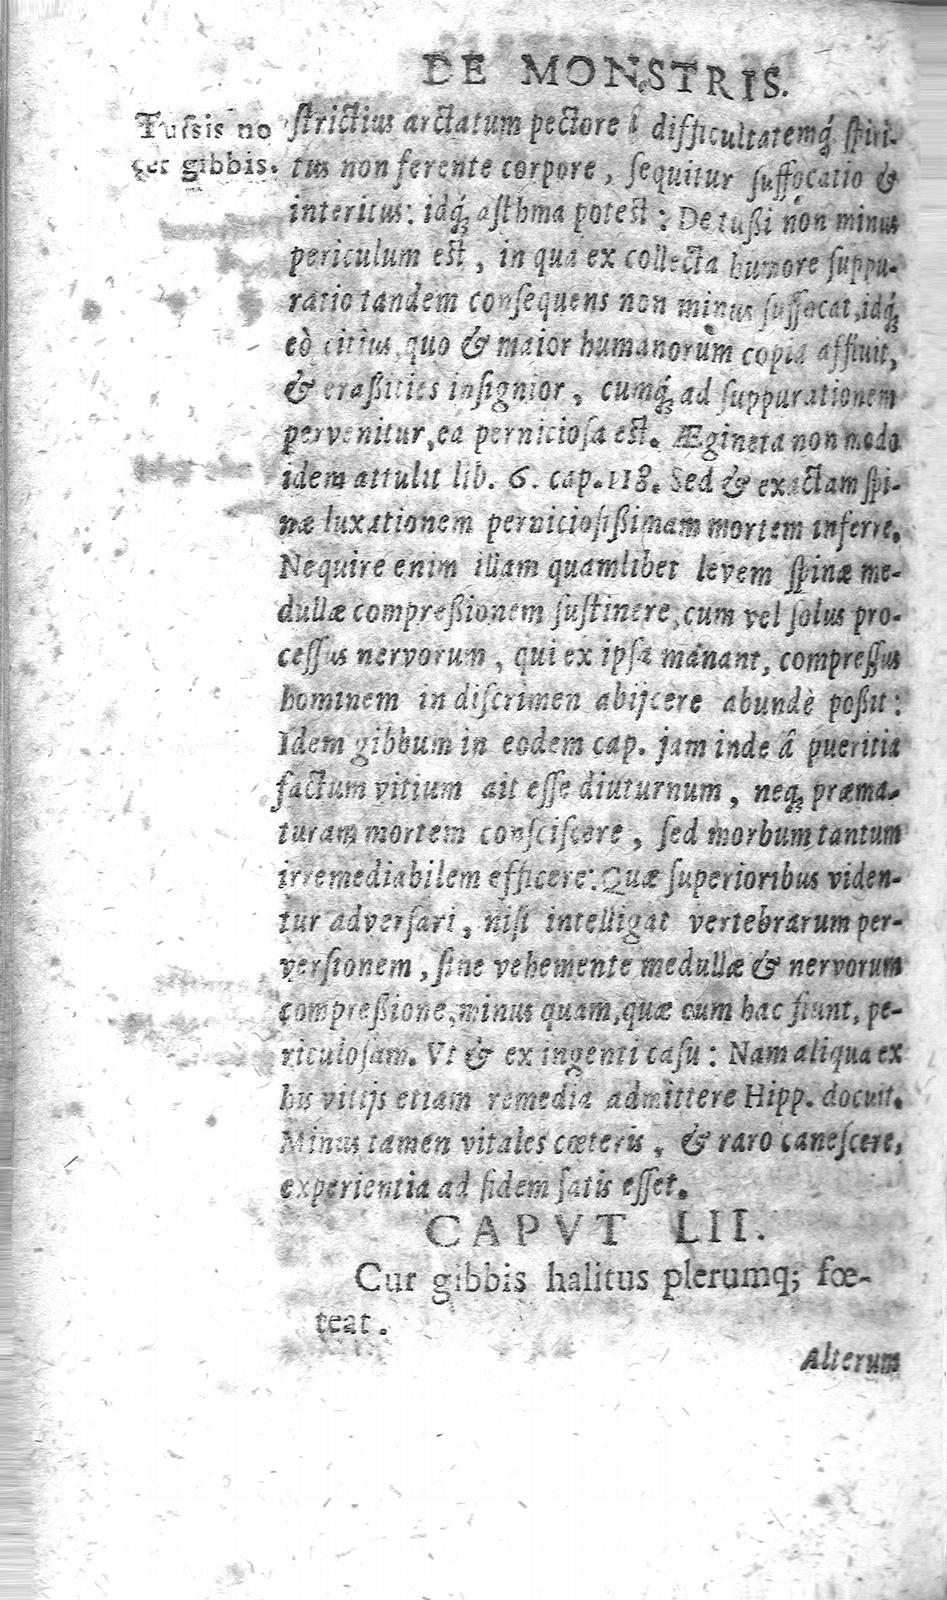 DE MONSTRIS.
Tussis no
cet gibbis.
ſtrictius arctatum pectore difficultatemq́; ſpiri-
tus non ferente corpore, ſequitur ſuffocatio &
interitus: idq́; aſthma poteſt: De tußi non minus
periculum eſt, in qua ex collecta humore ſuppu-
ratio tandem conſequens non minus ſuffocat, idq́;
eò citius, quo & maior humanorum copia affluit,
& craßities inſignior, cumq́; ad ſuppurationem
pervenitur, ea pernicioſa eſt. Ægineta non modo
idem attulit lib. 6. cap. 118. Sed & exactam ſpi-
næ luxationem pernicioſißimam mortem inferre.
Nequire enim illam quamlibet levem ſpinæ me-
dullæ compreßionem ſuſtinere, cum vel ſolus pro-
ceſſus nervorum, qui ex ipſa manant, compreſſus
hominem in diſcrimen abijcere abundè poßit:
Idem gibbum in eodem cap. jam inde â pueritia
factum vitium ait eſſe diuturnum, neq; præma-
turam mortem conſciſcere, ſed morbum tantum
irremediabilem efficere: Quæ ſuperioribus viden-
tur adverſari, niſi intelligat vertebrarum per-
verſionem, ſine vehemente medullæ & nervorum
compreßione, minus quam, quæ cum hac fiunt, pe-
riculoſam. Vt & ex ingenti caſu: Nam aliqua ex
his vitijs etiam remedia admittere Hipp. docuit.
Minus tamen vitales cœteris, & raro caneſcere,
experientia ad fidem ſatis eſſet.
CAPVT LII.
Cur gibbis halitus plerumq; fœ-
teat.
Alterum